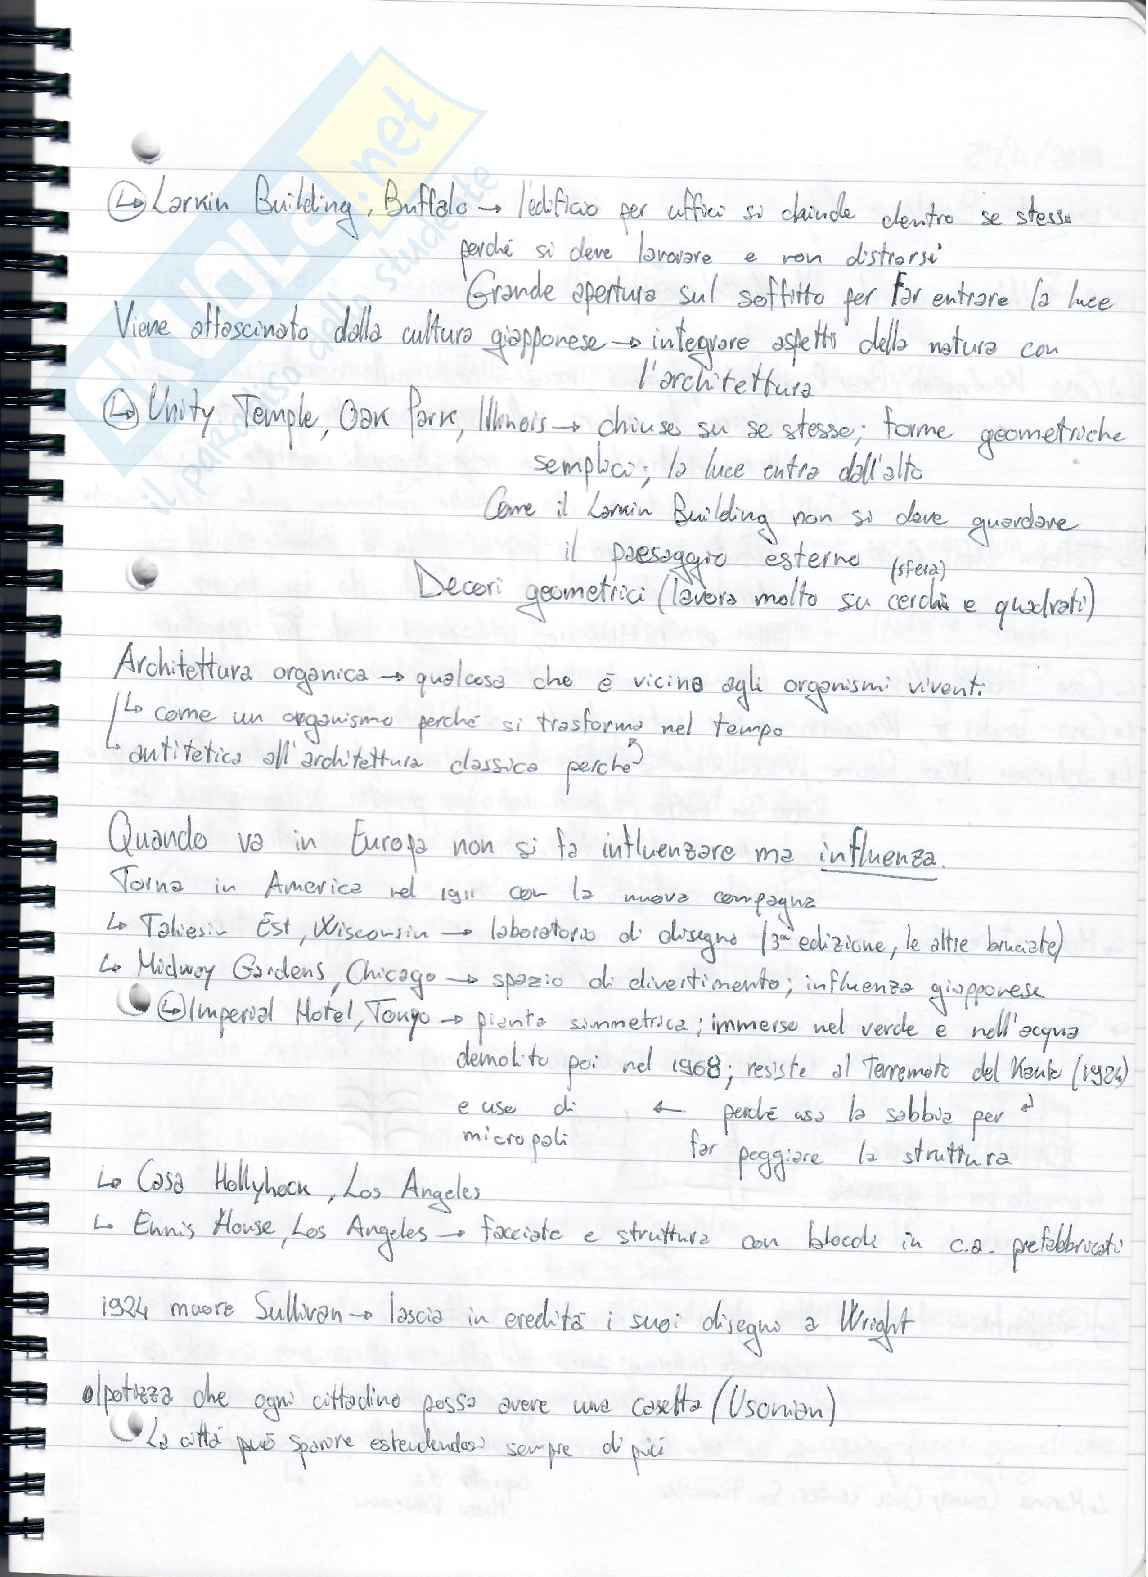 SKUOLA.net
il paradiso dello studente
↳ Larkin Building, Buffalo → l'edificio per uffici si chiude dentro se stesso
perché si deve lavorare e non distrarsi
Grande apertura sul soffitto per far entrare la luce
Viene affascinato dalla cultura giapponese → integrare aspetti della natura con
l'architettura
↳ Unity Temple, Oak Park, Illinois → chiuso su se stesso; forme geometriche
semplici; la luce entra dall'alto
Come il Larkin Building non si deve guardare
il paesaggio esterno (sfera)
Decori geometrici (lavora molto su cerchi e quadrati)
Architettura organica → qualcosa che è vicino agli organismi viventi
↳ come un organismo perché si trasforma nel tempo
↳ antitetica all'architettura classica perché
Quando va in Europa non si fa influenzare ma influenza.
Torna in America nel 1911 con la nuova compagna
↳ Taliesin Est, Wisconsin → laboratorio di disegno (3ª edizione, le altre bruciate)
↳ Midway Gardens, Chicago → spazio di divertimento; influenza giapponese
↳ Imperial Hotel, Tokyo → pianta simmetrica; immerso nel verde e nell'acqua
demolito poi nel 1968; resiste al Terremoto del Kanto (1924)
e uso di ← perché usa la sabbia per
micropali far poggiare la struttura
↳ Casa Hollyhock, Los Angeles
↳ Ennis House, Los Angeles → facciate e struttura con blocchi in c.a. prefabbricati
1924 muore Sullivan → lascia in eredità i suoi disegni a Wright
Ipotizza che ogni cittadino possa avere una casetta (Usonian)
↳ La città può sparire estendendosi sempre di più